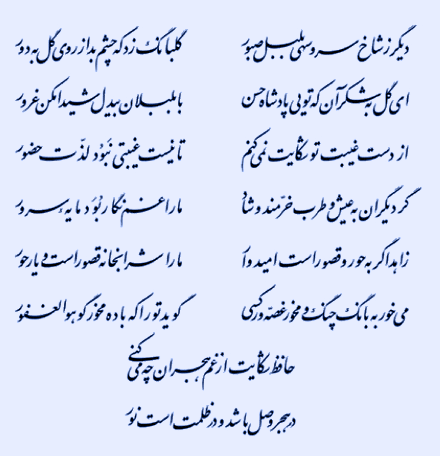 دیگر ز شاخ سرو سهی بلبل صبور گلبانگ زد که چشم بد از روی گل به دور
ای گل به شکر آن که تویی پادشاه حسن با بلبلان بیدل شیدا مکن غرور
از دست غیبت تو شکایت نمی‌کنم تا نیست غیبتی نَبُوَد لذّت حضور
گر دیگران به عیش و طرب خرّمند و شاد ما را غم نگار بُوَد مایه سرور
زاهد اگر به حور و قصور است امیدوار ما را شرابخانه قصور است و یار حور
می خور به بانگ چنگ و مخور غصّه ور کسی گوید تو را که باده مخور گو هوالغفور
حافظ شکایت از غم هجران چه می‌کنی
در هجر وصل باشد و در ظلمت است نور